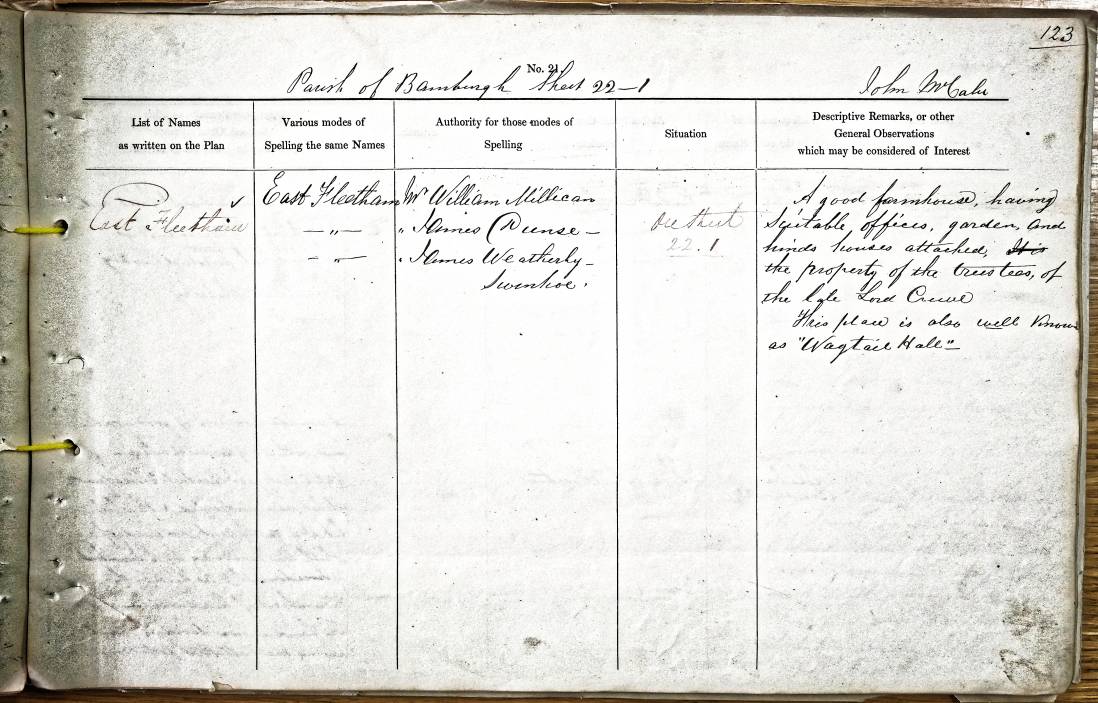 123
No. 21.
Parish of Bamburgh Sheet 22-1 John McCabe
List of Names
as written on the Plan
Various modes of
Spelling the same Names
Authority for those modes of
Spelling
Situation
Descriptive Remarks, or other
General Observations
which may be considered of Interest
East Fleetham
East Fleetham
— „ —
— „ —
Mr William Millican
„ James Dunse —
„ James Weatherly —
Swinhoe.
On Sheet
22.1
A good farmhouse, having
suitable offices, garden, and
hinds houses attached, It is
the property of the trustees, of
the late Lord Crewe
This place is also well known
as "Wagtail Hall" —